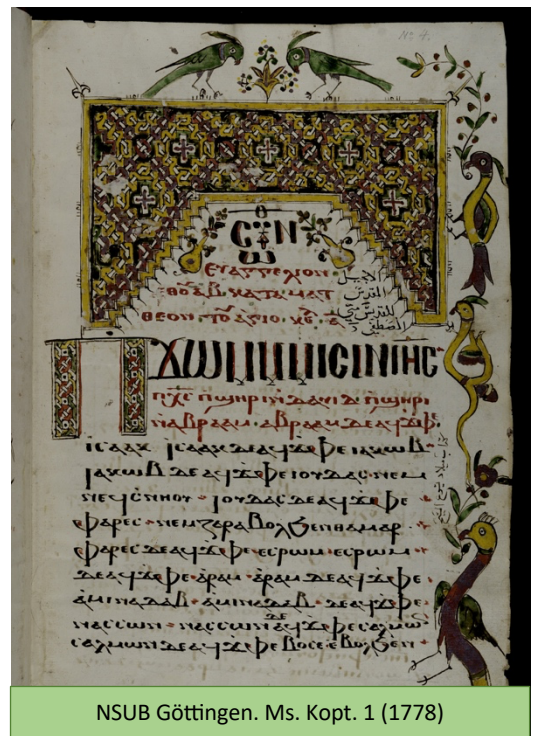 Nº 4.
ⲥⲩⲛ ⲑⲱ
ⲉⲩⲁⲅⲅⲉⲗⲓⲟⲛ
ⲕⲁⲧⲁ ⲙⲁⲧ
ⲑⲉⲟⲛ
الانجيل
المقدس
ⲡϫⲱⲙⲙⲙⲓⲥⲓⲛⲓⲏⲥ
ⲡⲭⲥ ⲡϣⲏⲣⲓ ⲛⲇⲁⲩⲓⲇ ⲡϣⲏⲣⲓ
ⲛⲁⲃⲣⲁⲁⲙ · ⲁⲃⲣⲁⲁⲙ ⲇⲉ ⲁϥϫⲫⲉ
ⲓⲥⲁⲁⲕ ⲓⲥⲁⲁⲕ ⲇⲉ ⲁϥϫⲫⲉ ⲓⲁⲕⲱⲃ
ⲓⲁⲕⲱⲃ ⲇⲉ ⲁϥϫⲫⲉ ⲓⲟⲩⲇⲁⲥ ⲛⲉⲙ
ⲛⲉϥⲥⲛⲏⲟⲩ · ⲓⲟⲩⲇⲁⲥ ⲇⲉ ⲁϥϫⲫⲉ
ⲫⲁⲣⲉⲥ · ⲛⲉⲙ ⲍⲁⲣⲁ ⲉⲃⲟⲗ ϧⲉⲛ ⲑⲁⲙⲁⲣ
ⲫⲁⲣⲉⲥ ⲇⲉ ⲁϥϫⲫⲉ ⲉⲥⲣⲱⲙ · ⲉⲥⲣⲱⲙ
ⲇⲉ ⲁϥϫⲫⲉ ⲁⲣⲁⲙ · ⲁⲣⲁⲙ ⲇⲉ ⲁϥϫⲫⲉ
ⲁⲙⲓⲛⲁⲇⲁⲃ · ⲁⲙⲓⲛⲁⲇⲁⲃ ⲇⲉ ⲁϥϫⲫⲉ
ⲛⲁⲥⲥⲱⲛ · ⲛⲁⲥⲥⲱⲛ ⲇⲉ ⲁϥϫⲫⲉ ⲥⲁⲗⲙⲱⲛ
ⲥⲁⲗⲙⲱⲛ ⲇⲉ ⲁϥϫⲫⲉ ⲃⲟⲉⲥ ⲉⲃⲟⲗ ϧⲉⲛ
NSUB Göttingen. Ms. Kopt. 1 (1778)